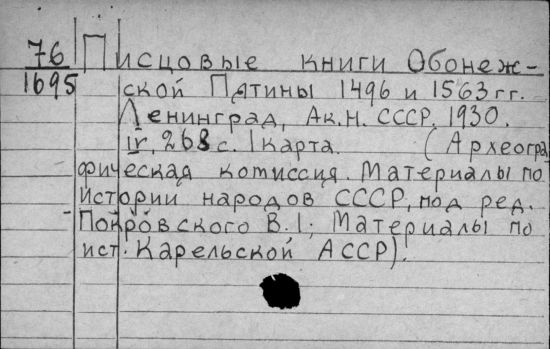 76 Писцовые книги Обонеж-
1695 ской Пятины 1496 и 1563 гг.
Ленинград, Ак.Н. СССР. 1930.
IV, 268 с. 1 карта. (Археогра
фическая комиссия. Материалы по
истории народов СССР, под ред.
Покровского В.1; Материалы по
ист. Карельской АССР).